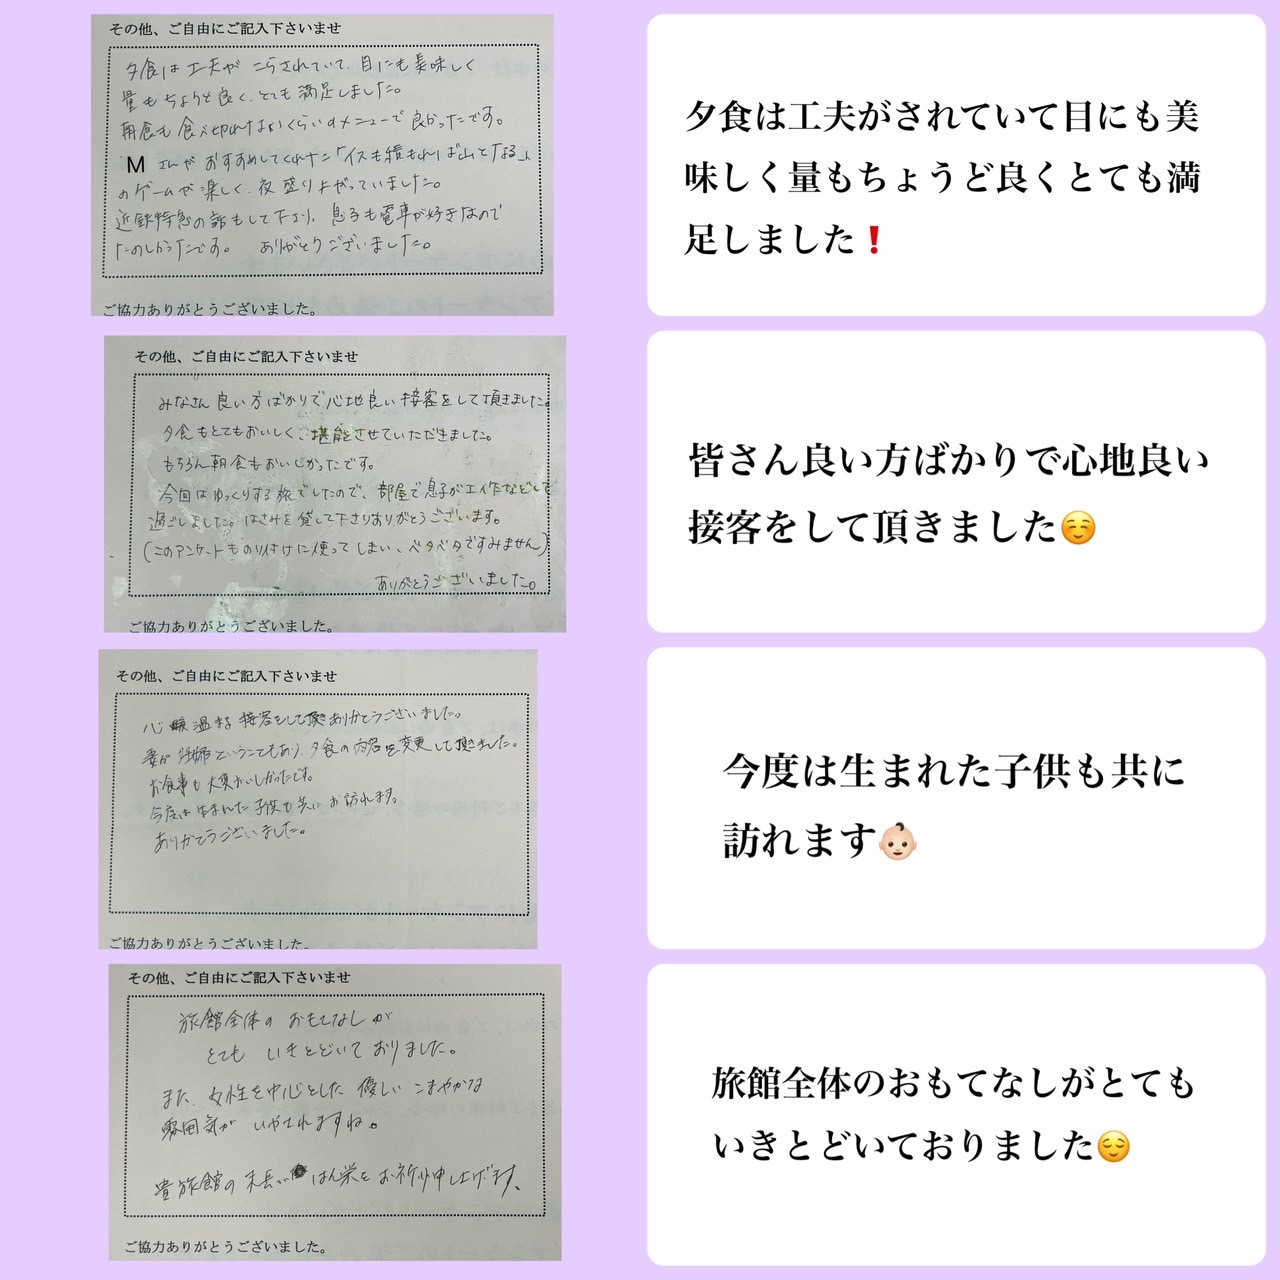 その他、ご自由にご記入下さいませ
夕食は工夫がこらされていて、目にも美味しく
量もちょうど良く、とても満足しました。
朝食も食べ切れないくらいのメニューで良かったです。
Mさんがおすすめしてくれた「イスも積もれば山となる」
のゲームが楽しく、夜盛り上がっていました。
近鉄特急の話もして下さり、息子も電車が好きなので
たのしそうです。 ありがとうございました。
ご協力ありがとうございました。
夕食は工夫がされていて目にも美
味しく量もちょうど良くとても満
足しました❗
その他、ご自由にご記入下さいませ
みなさん良い方ばかりで心地良い接客をして頂きました。
夕食もとてもおいしく、堪能させていただきました。
もちろん朝食もおいしかったです。
今回はゆっくりする旅でしたので、部屋で息子が工作などして
過ごしました。はさみを貸して下さりありがとうございます。
(このアンケートものり付けに使ってしまい、ベタベタですみません)
ありがとうございました。
ご協力ありがとうございました。
皆さん良い方ばかりで心地良い
接客をして頂きました☺️
その他、ご自由にご記入下さいませ
心温まる接客をして頂きありがとうございました。
妻が妊婦ということもあり、夕食の内容を変更して頂きました。
お食事も大変おいしかったです。
今度は生まれた子供も共にお訪れます。
ありがとうございました。
ご協力ありがとうございました。
今度は生まれた子供も共に
訪れます👶🏻
その他、ご自由にご記入下さいませ
旅館全体のおもてなしが
とても いきとどいておりました。
また、女性を中心とした優しいこまやかな
雰囲気が いやされますね。
貴旅館の末長い はん栄をお祈り申し上げます。
ご協力ありがとうございました。
旅館全体のおもてなしがとても
いきとどいておりました😌